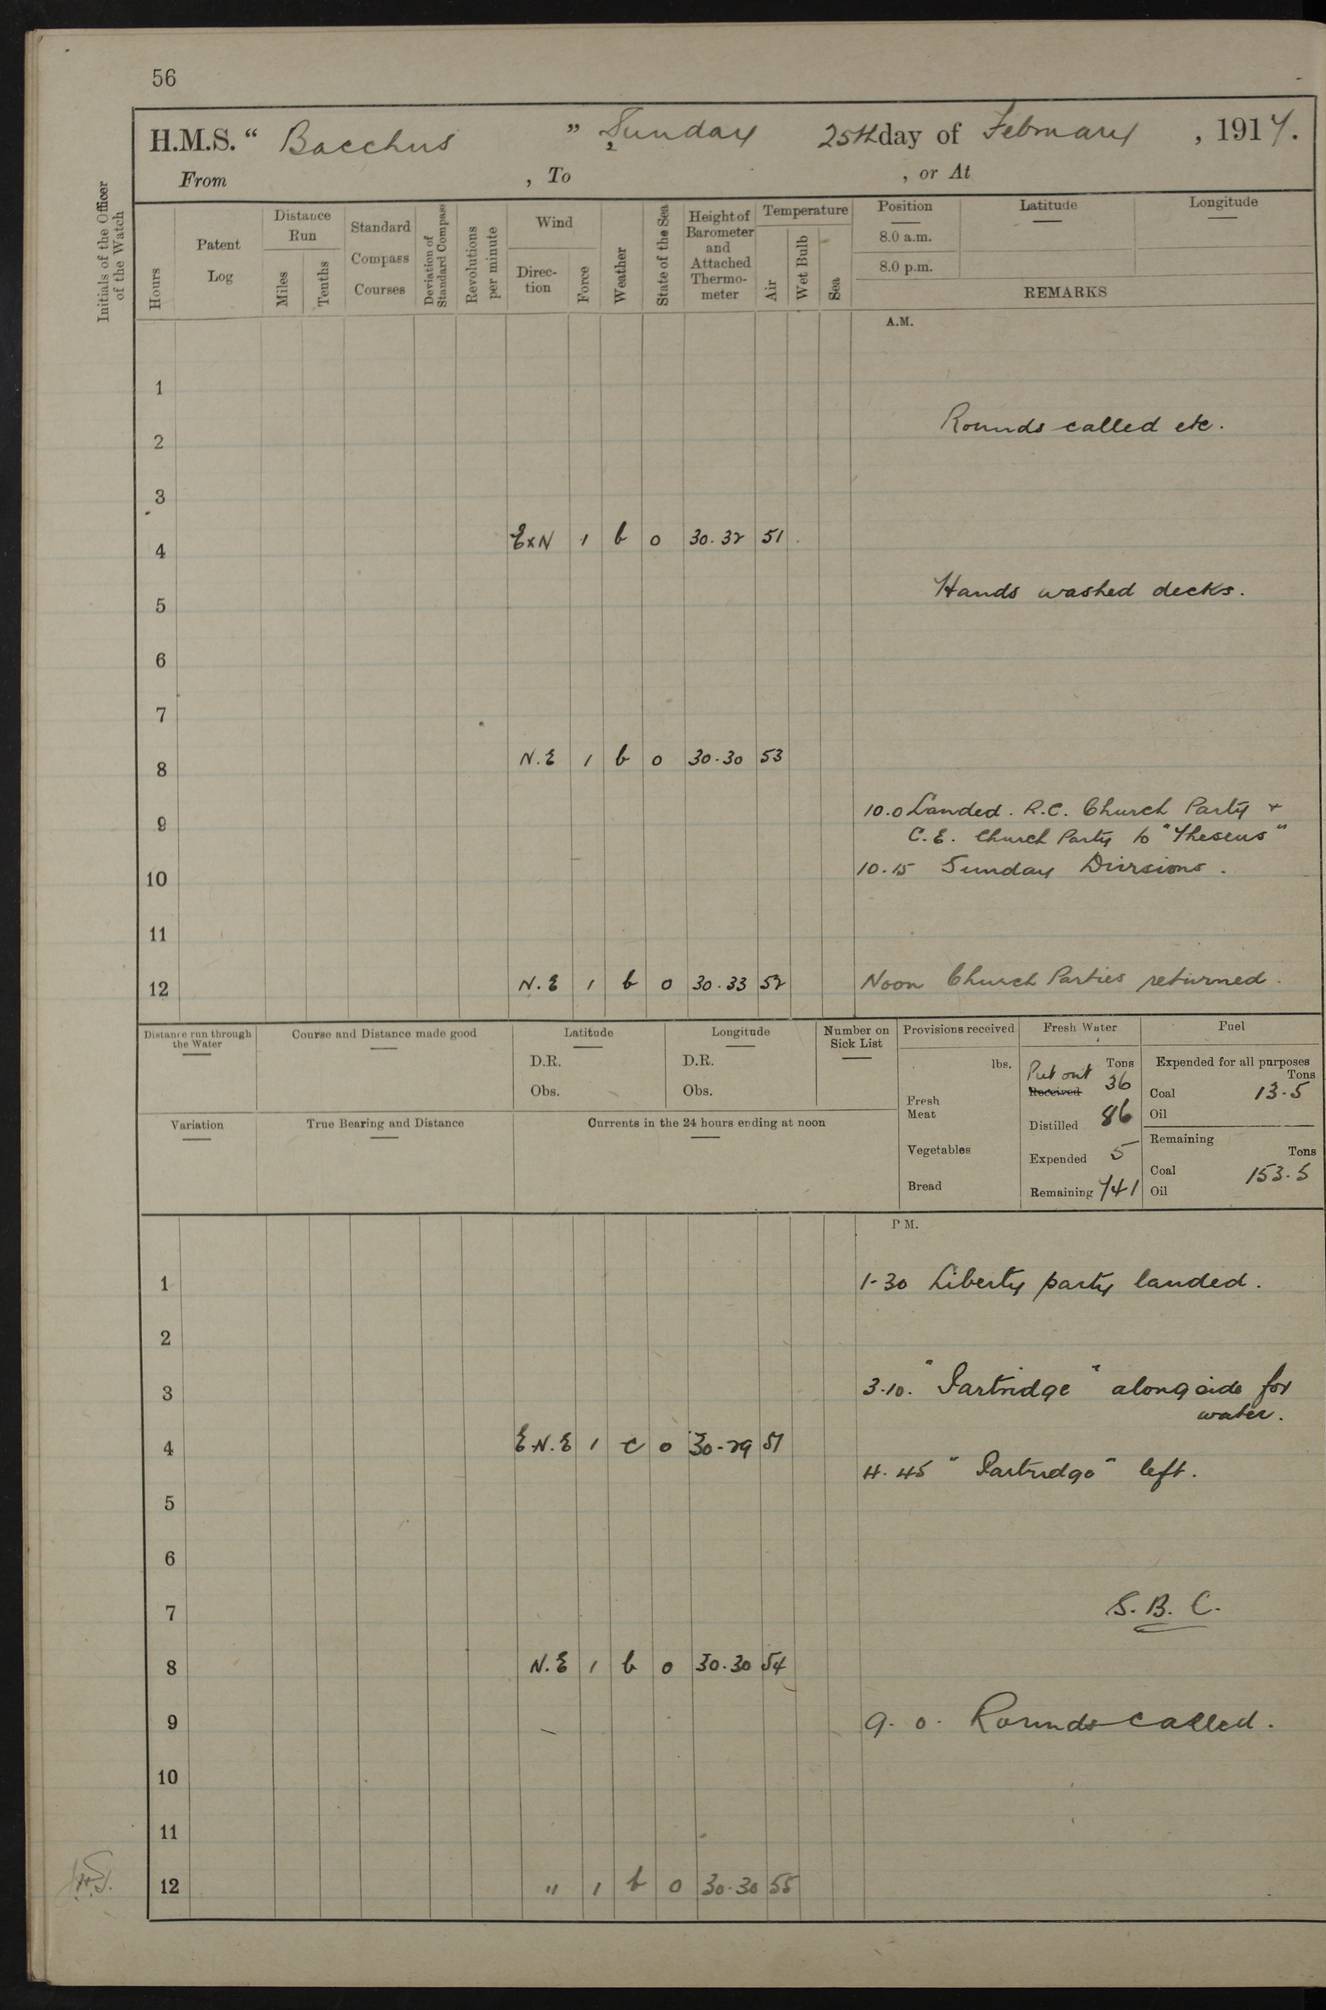 56
H.M.S. “ Bacchus ” Sunday 25th day of February , 1917.
From , To , or At
Initials of the Officer of the Watch
Hours
Patent Log
Distance Run
Miles
Tenths
Standard Compass Courses
Deviation of Standard Compass
Revolutions per minute
Wind
Direction
Force
Weather
State of the Sea
Height of Barometer and Attached Thermometer
Temperature
Air
Wet Bulb
Sea
Position Latitude Longitude
8.0 a.m.
8.0 p.m.
REMARKS
A.M.
1
Rounds called etc.
2
3
4 ExN 1 b 0 30.32 51
Hands washed decks.
5
6
7
8 N.E 1 b 0 30.30 53
10.0 Landed. R.C. Church Party +
9
C.E. Church Party to "Theseus"
10.15 Sunday Divisions.
10
11
12 N.E 1 b 0 30.33 52 Noon Church Parties returned.
Distance run through the Water
Course and Distance made good
Latitude
D.R.
Obs.
Longitude
D.R.
Obs.
Number on Sick List
Provisions received
lbs.
Fresh Meat
Vegetables
Bread
Fresh Water
Tons
Put out 36
Received
Distilled 86
Expended 5
Remaining 741
Fuel
Expended for all purposes
Tons
Coal 13.5
Oil
Remaining
Tons
Coal 153.5
Oil
Variation
True Bearing and Distance
Currents in the 24 hours ending at noon
P.M.
1 1-30 Liberty party landed.
2
3 3.10. "Partridge" alongside for
water.
4 E.N.E 1 c 0 30-29 51
4.45 "Partridge" left.
5
6
7 S.B.C.
8 N.E 1 b 0 30.30 54
9 9.0. Rounds called.
10
11
12 " 1 b 0 30.30 55